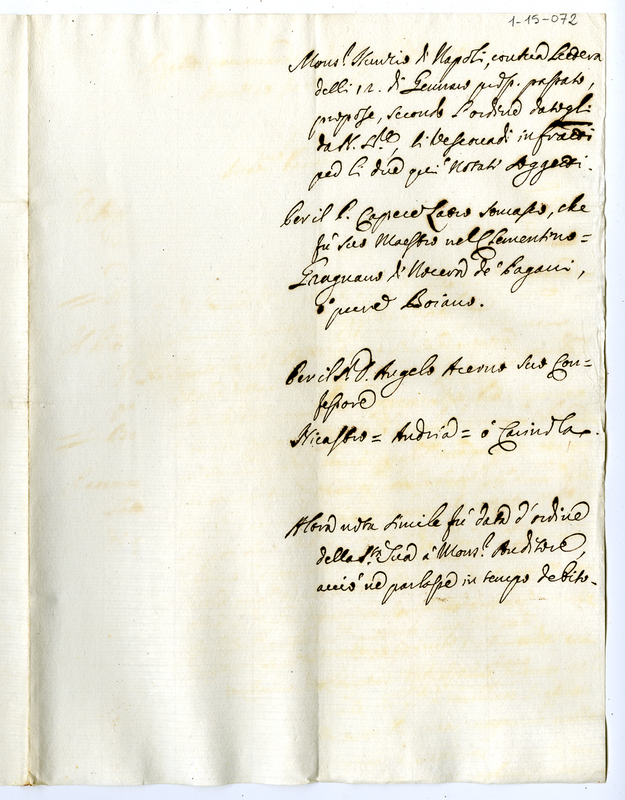 1-15-072
Mons.r Nunzio di Napoli, con sua Lettera
delli 12. di Gennaro pross. passato,
propose, secondo l'ordine datogli
da N. S.re, li Vescovadi infratti
per li due qui notati Soggetti.
Per il P. Capece Latro Somasco, che
fù suo Maestro nel Clementino =
Gragnano di Nocera de' Pagani,
ò pure Boiano.
Per il S.r D. Angelo Acerno suo Con=
fessore
Nicastro = Andria = ò
Altra nota simile fù data d'ordine
della S.tà Sua à Mons.r Auditore,
acciò ne parlasse in tempo debito.